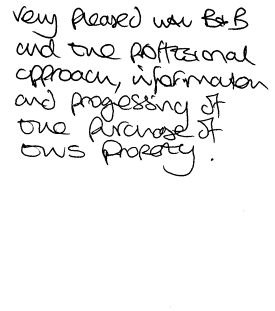 Very pleased with B&B
and the proffesional
approach, information
and progessing of
the purchase of
this property.